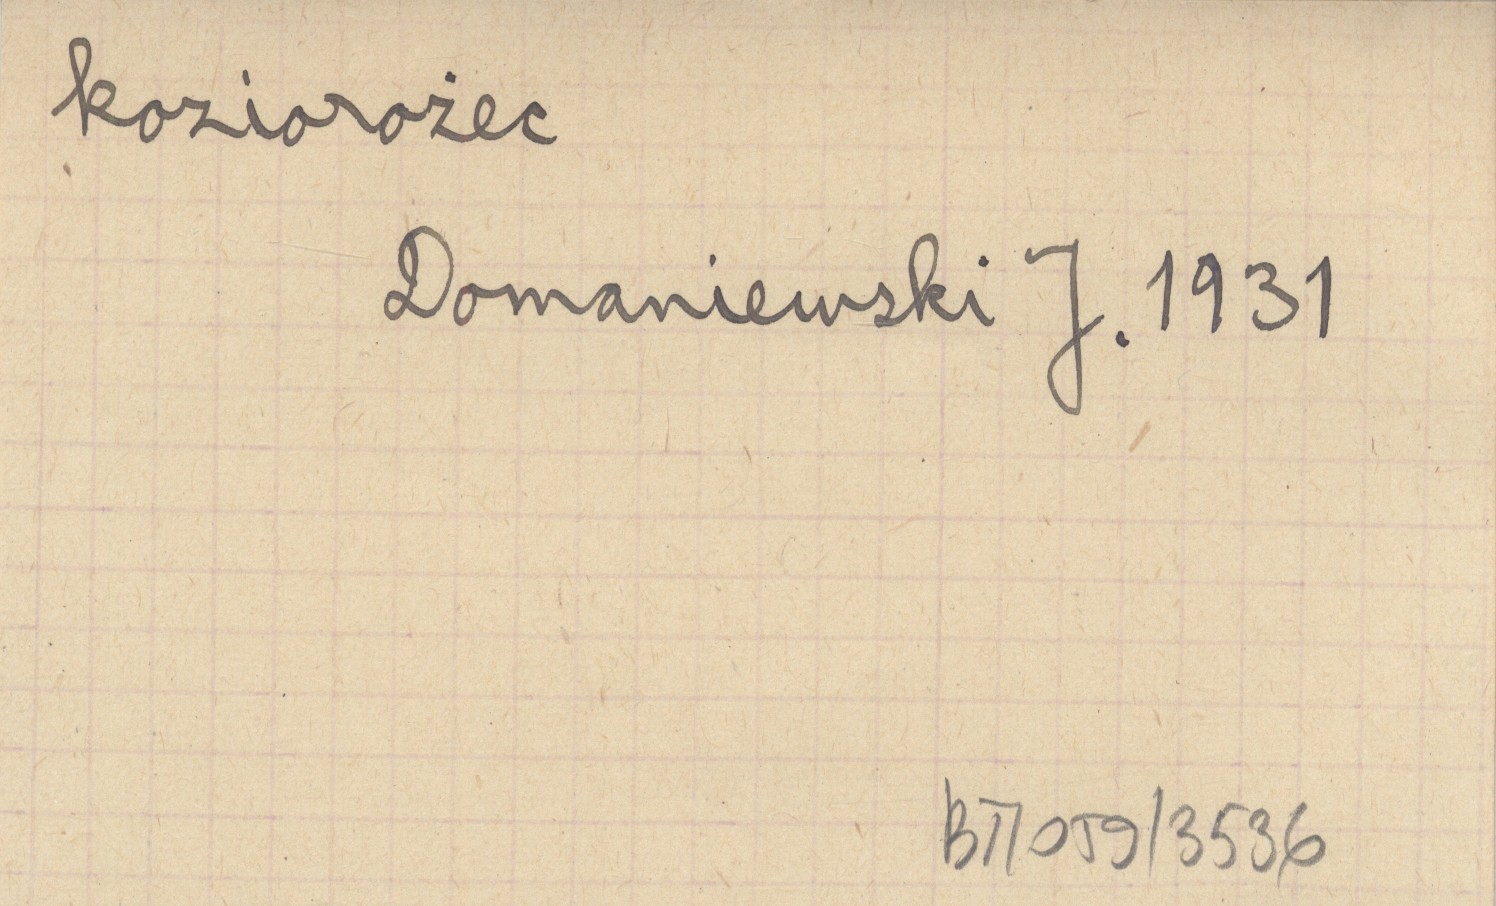 koziorożec
Domaniewski J. 1931
BTI059/3536